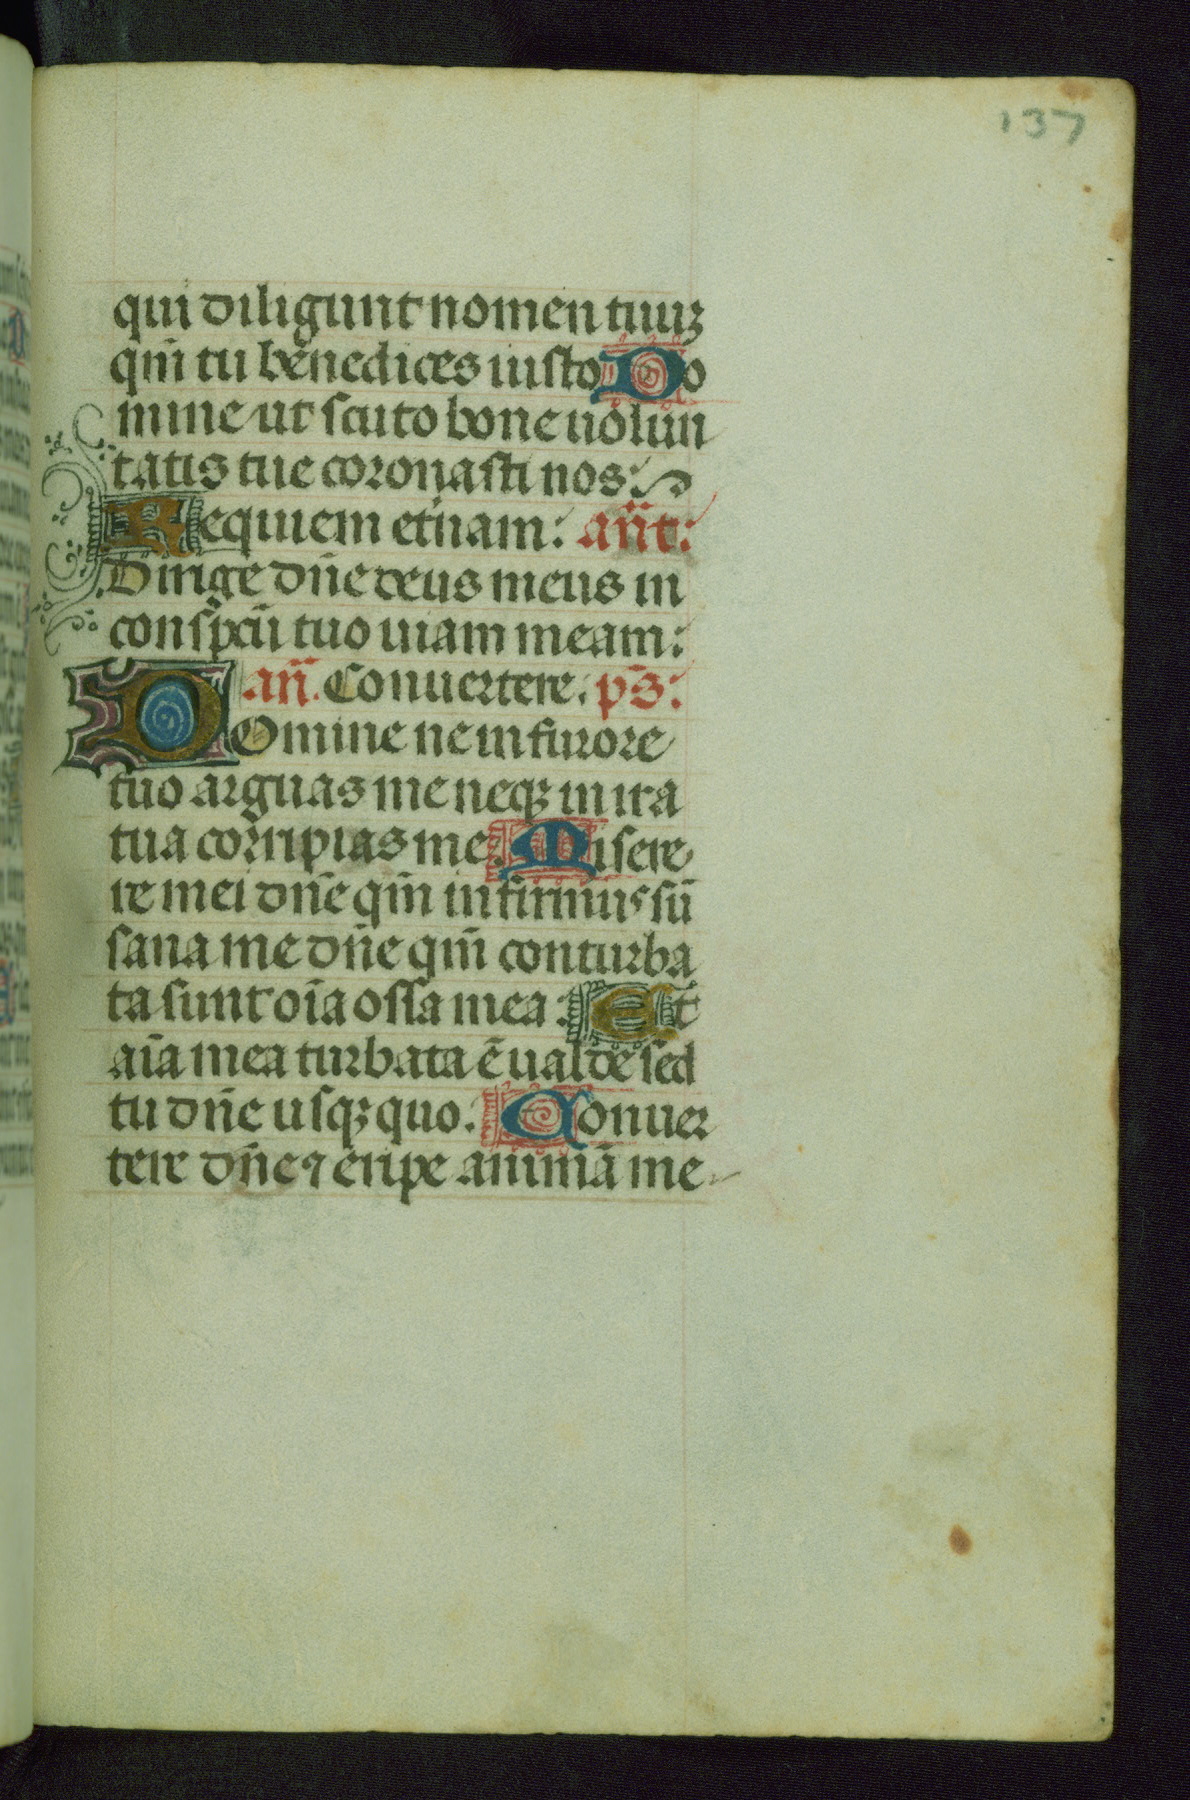 137
qui diligunt nomen tuuꝫ
qm̄ tu benedices iusto Do
mine ut scuto bone uolun
tatis tue coronasti nos:
Requiem et̄nam: an̄t:
Dirige dn̄e deus meus in
conspcū tuo uiam meam:
an̄. Conuertere. ps̄:
DOmine ne in furore
tuo arguas me neqꝫ in ira
tua corripias me. Misere
re mei dn̄e qm̄ infirmus sū
sana me dn̄e qm̄ conturba
ta sunt oīa ossa mea: Et
aīa mea turbata ē ualde sed
tu dn̄e usqꝫ quo. Conuer
tere dn̄e ⁊ eripe animā me